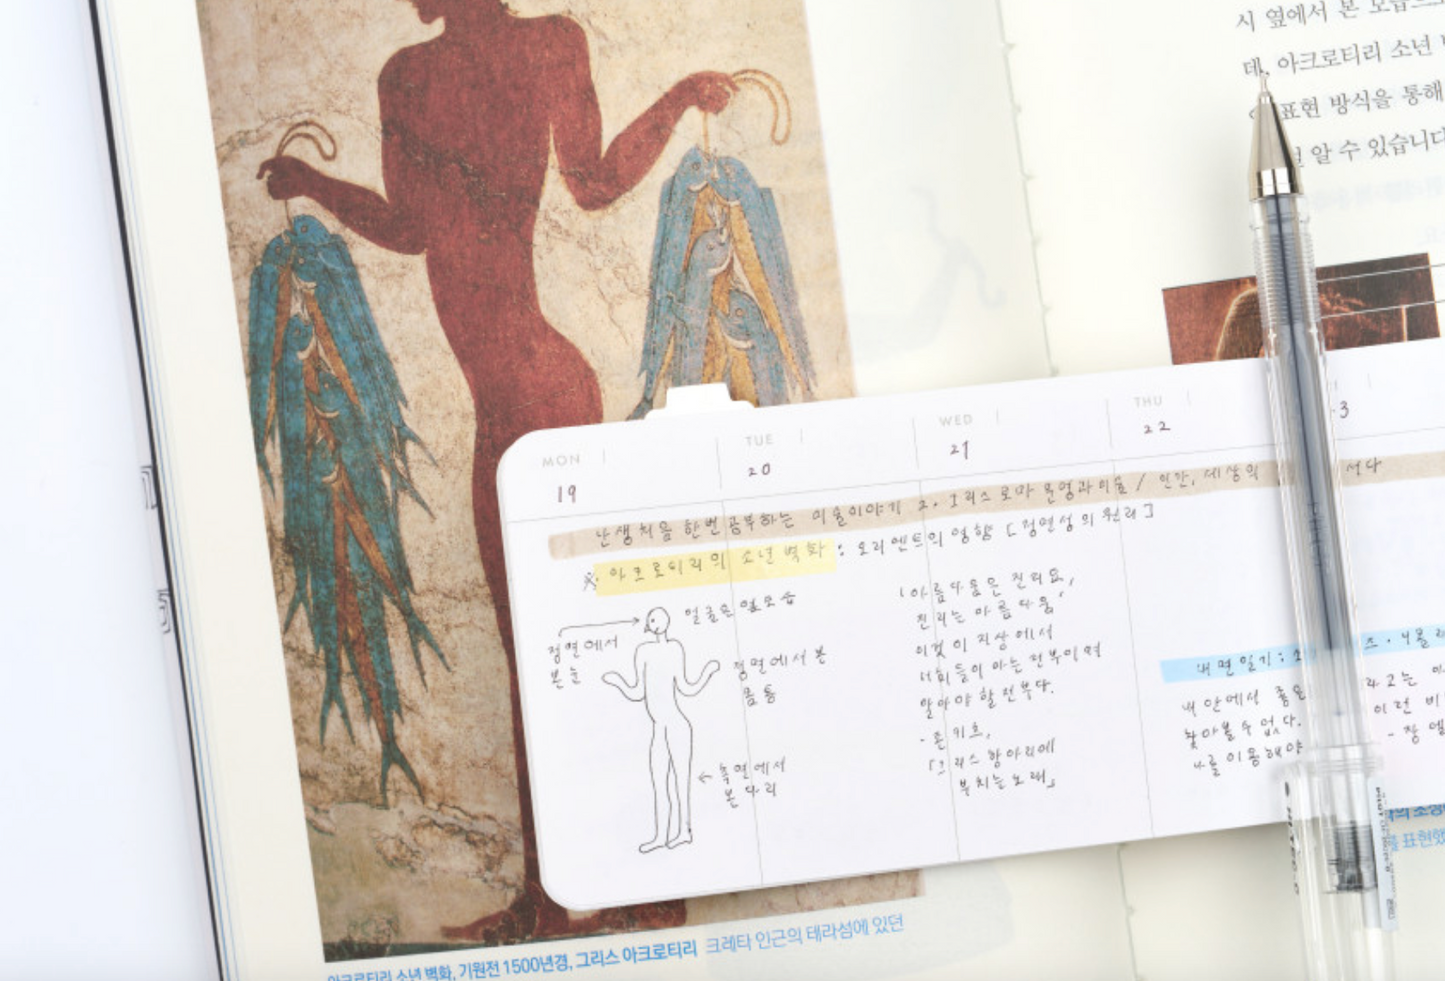 시 옆에서 본 모습으로
데, 아크로티리 소년
표현 방식을 통해
알 수 있습니다
MON
TUE
WED
THU
19
20
21
22
난생처음 한번 공부하는 미술이야기 2. 그리스 로마 문명과 미술 / 인간, 세상의 서다
※. 아크로티리의 소년 벽화 : 오리엔트의 영향 [정면성의 원리]
얼굴은 옆모습
정면에서
본 눈
정면에서 본
몸통
← 측면에서
본 다리
'아름다움은 진리요,
진리는 아름다움,
이것이 지상에서
너희들이 아는 전부이며
알아야 할 전부다.
- 존 키츠,
「그리스 항아리에
부치는 노래」
내면일기 :
내 안에서 좋은 라고는
찾아볼 수 없다. 이런
나를 이용해야
아크로티리 소년 벽화, 기원전 1500년경, 그리스 아크로티리 크레타 인근의 테라섬에 있던
표현했